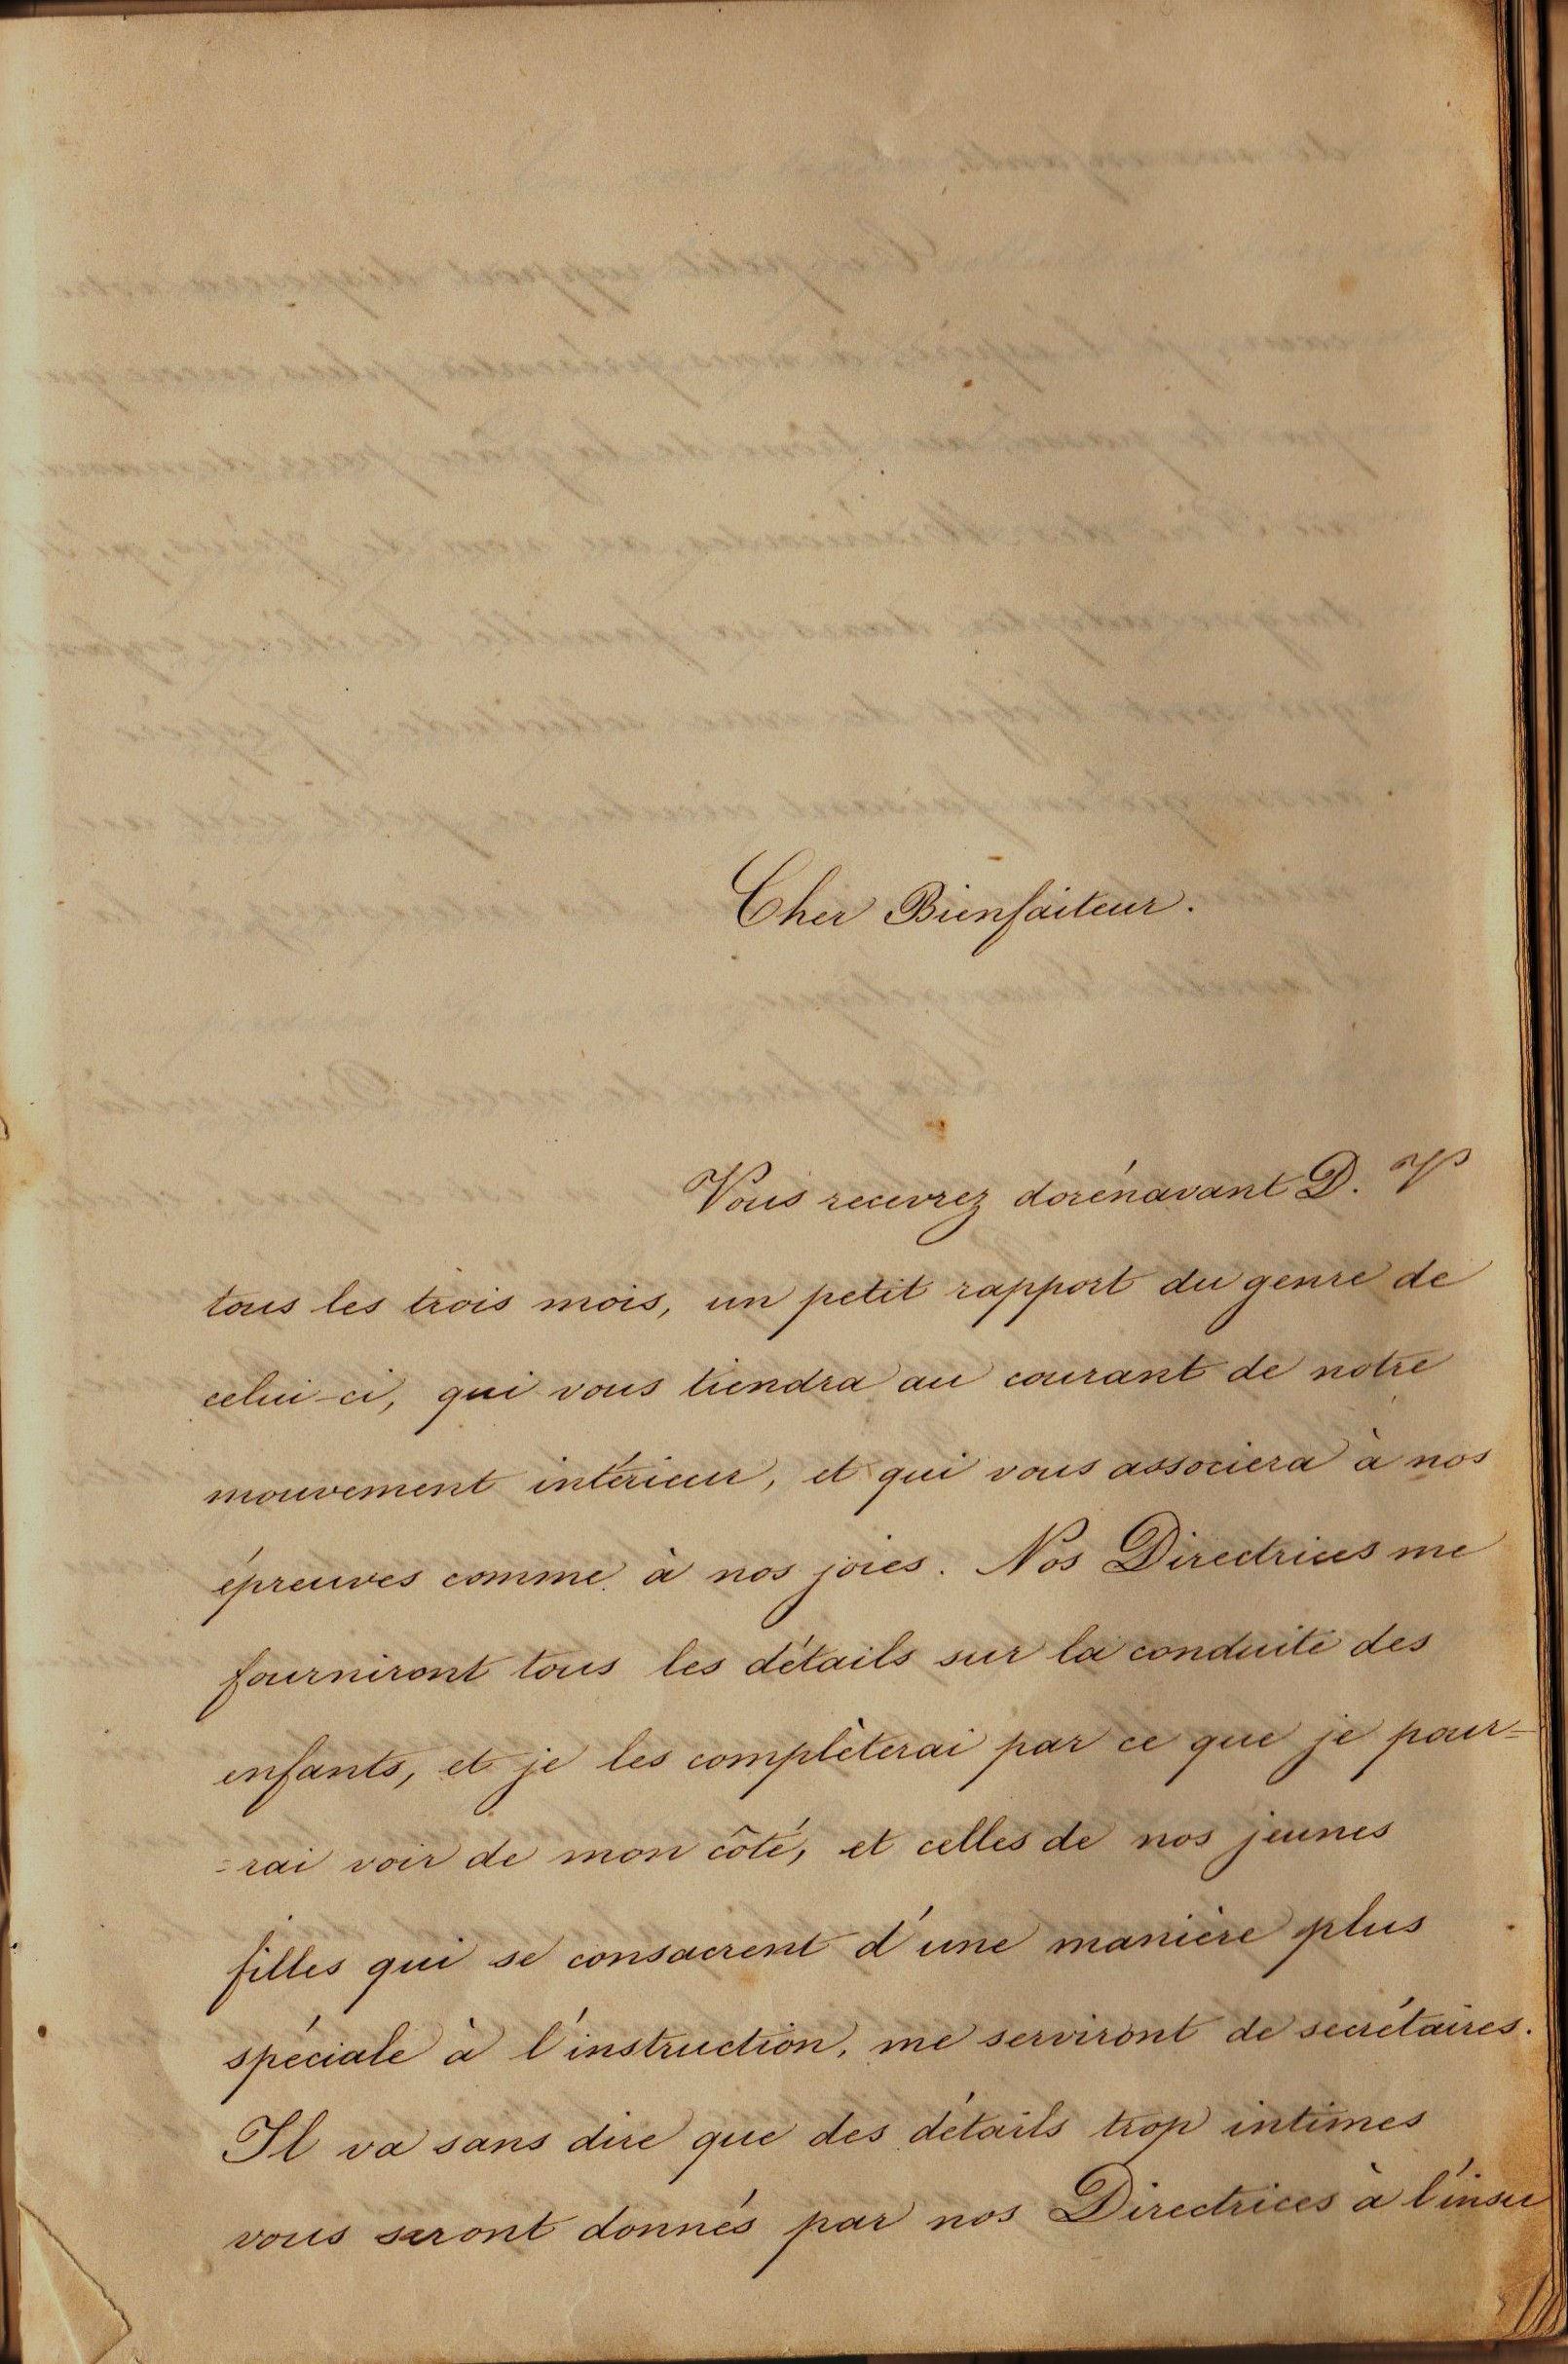 Cher Bienfaiteur.
Vous recevrez dorénavant D. V
tous les trois mois, un petit rapport du genre de
celui-ci, qui vous tiendra au courant de notre
mouvement intérieur, et qui vous associera à nos
épreuves comme à nos joies. Nos Directrices me
fourniront tous les détails sur la conduite des
enfants, et je les complèterai par ce que je pour-
-rai voir de mon côté, et celles de nos jeunes
filles qui se consacrent d'une manière plus
spéciale à l'instruction, me serviront de secrétaires.
Il va sans dire que des détails trop intimes
vous seront donnés par nos Directrices à l'insu